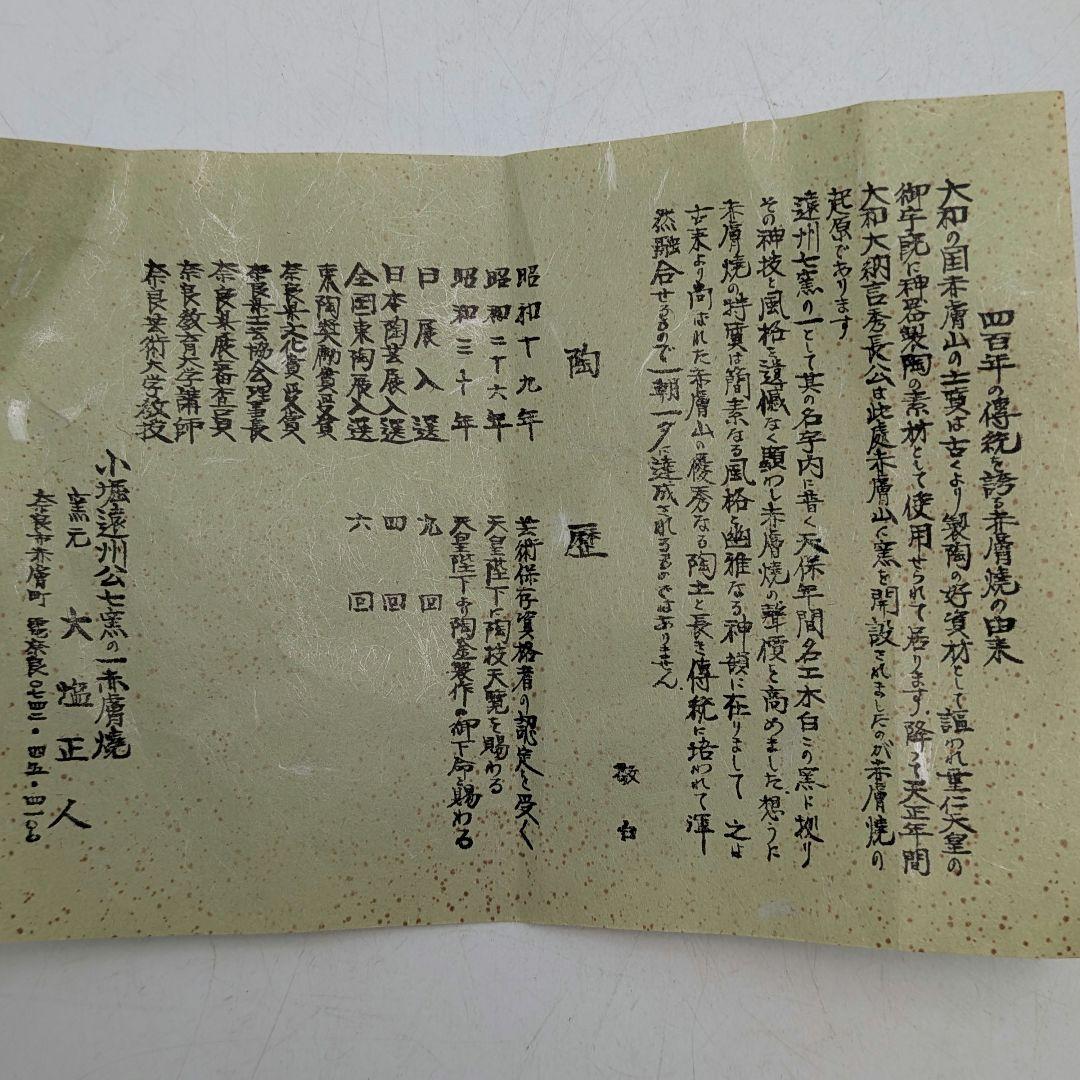 四百年の傳統を誇る赤膚焼の由来
大和の国赤膚山の土質は古くより製陶の好資材として謳われ垂仁天皇の
御宇既に神器製陶の素材として使用せられて居ります、降って天正年間
大和大納言秀長公は此處赤膚山に窯を開設されましたのが赤膚焼の
起原であります
遠州七窯の一として其の名宇内に普く天保年間名工木白この窯に拠り
その神技と風格を遺憾なく顕わし赤膚焼の聲價を高めました想うに
赤膚焼の特質は簡素なる風格と幽雅なる神韻に在りまして之は
古来より尚ばれた赤膚山の優秀なる陶土と長き傳統に培われて渾
然融合せるもので一朝一夕に達成されるものではありません
敬白
陶歴
昭和十九年 芸術保存資格者の認定を受く
昭和二十六年 天皇陛下に陶技天覧を賜わる
昭和三十年 天皇陛下より陶金製作の御下命を賜わる
日展入選 九回
日本陶芸展入選 四回
全国東陶展入選 六回
東陶奨励賞受賞
奈良県文化賞受賞
奈良県工芸協会理事長
奈良県展審査員
奈良教育大学講師
奈良芸術大学教授
小堀遠州公七窯の一赤膚燒
窯元 大塩正人
奈良市赤膚町 電奈良〇七四二・四五・四一〇〇